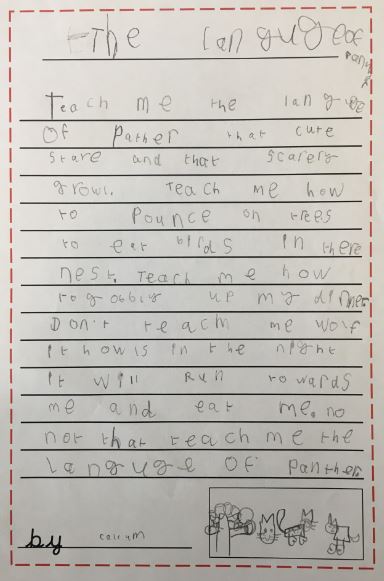 The langugeof
panther
Teach me the languge
Of Pather that cute
stare and that scarery
growl. Teach me how
to Pounce on trees
to eat birds in there
nest. Teach me how
to gobbig up my dinner
Don't teach me wolf
it howls in the night
it will Run towards
me and eat me. no
not that teach me the
languge Of Panther
by callum